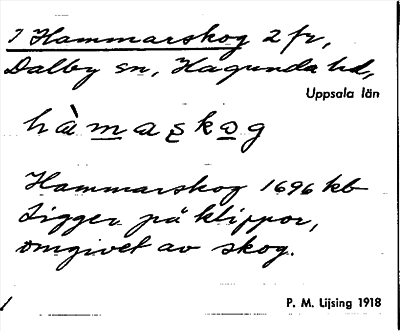 7 Hammarskog 2 fr,
Dalby sn, Hagunda hd,
Uppsala län
hàmaskog
Hammarskog 1696 kb
Ligger på klippor,
omgivet av skog.
P. M. Lijsing 1918